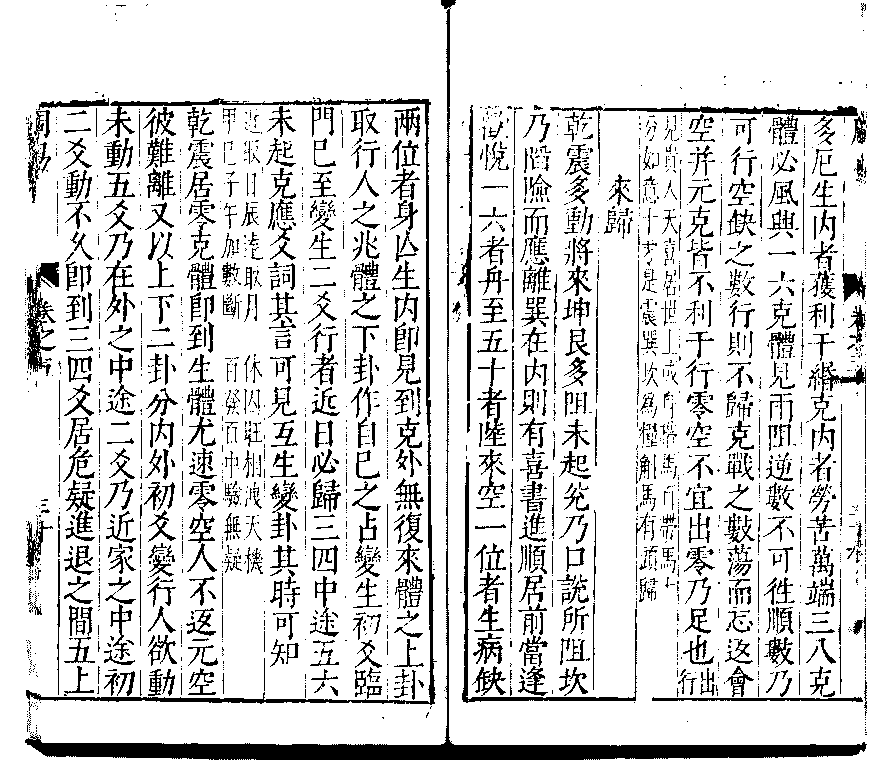 多厄生内者獲利干緡克内者勞苦萬端三八克
體必風與一六克體見雨阻逆數不可徃順數乃
可行空缺之數行則不歸克戰之數蕩而忘返會
空并元克皆不利于行零空不宜出零乃足也出行
見貴人天喜居世上或身帶馬
如意十才是震巽坎為糧解馬有頭歸
來歸
乾震多動將來坤艮多阻未起兊乃口說所阻坎
乃陷險而應離巽在内則有喜書進順居前當逢
歡悅一六者舟至五十者陸來空一位者生病缺
兩位者身亾生内卽見到克外無復來體之上卦
取行人之兆體之下卦作自巳之占變生初爻臨
門巳至變生二爻行者近日必歸三四中途五六
未起克應爻詞其言可見互生變卦其時可知
近取日辰逺取月 休囚旺相洩天機
甲巳子午加數斷 百發百中驗無疑
乾震居零克體卽到生體尤速零空人不返元空
彼難離又以上下二卦分内外初爻變行人欲動
未動五爻乃在外之中途二爻乃近家之中途初
二爻動不久卽到三四爻居危疑進退之間五上
卷之
三十